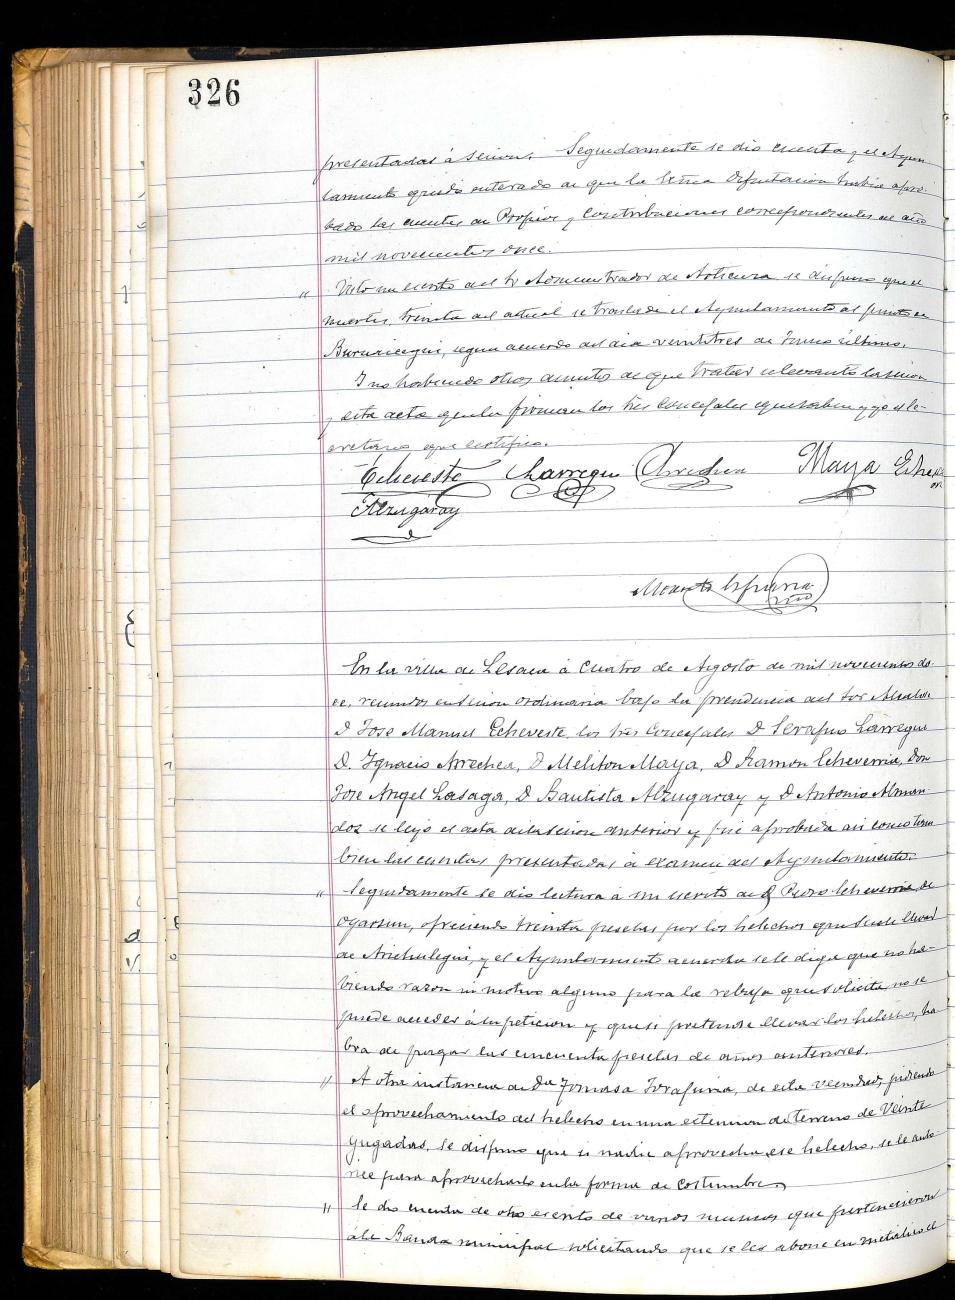 326
presentadas á sesion. Seguidamente se dio cuenta y el Ayun
tamiento quedó enterado de que la Excma Diputacion habia apro-
bado las cuentas de Propios y Contribuciones correspondientes al año
mil novecientos once.
" Visto un escrito del Sr Administrador de Articuza se dispuso que el
martes, treinta del actual se traslade el Ayuntamiento al punto de
segun acuerdo del dia veintitres de Junio último.
Y no habiendo otros asuntos de que tratar se levantó la sesion
y esta acta que la firman los Sres Concejales que saben y yo el Se-
cretario que certifico.
Echeveste Larregui Arrechea Maya Echeve
Alzugaray
En la villa de Lesaca á cuatro de Agosto de mil novecientos do
ce, reunidos en sesion ordinaria bajo la presidencia del Sor Alcalde
D Jose Manuel Echeveste los Sres Concejales D Serafin Larregui
D. Ignacio Arrechea, D Meliton Maya, D Ramon Echeverria, Don
Jose Angel Lasaga, D Bautista Alzugaray y D Antonio Alman
doz se leyó el acta de la sesion anterior y fué aprobada asi como tam
bien las cuentas presentadas á examen del Ayuntamiento.
" Seguidamente se dio lectura á un escrito de D Pedro Echeverria, de
Oyarzun, ofreciendo treinta pesetas por los helechos que suele llevar
de Arichulegui, y el Ayuntamiento acuerda se le diga que no ha-
biendo razon ni motivo alguno para la rebaja que solicita, no se
puede acceder á su peticion y que si pretende llevar los helechos, ha
bra de pagar las cincuenta pesetas de años anteriores.
" A otra instancia de Da Tomasa de esta vecindad, pidiendo
el aprovechamiento del helecho en una extension de terreno de Veinte
yugadas, se dispuso que si nadie aprovecha ese helecho, se le auto-
rice para aprovecharlo en la forma de costumbre.
" Se dio cuenta de otro escrito de varios musicos que pertenecieron
á la Banda municipal solicitando que se les abone en metalico el